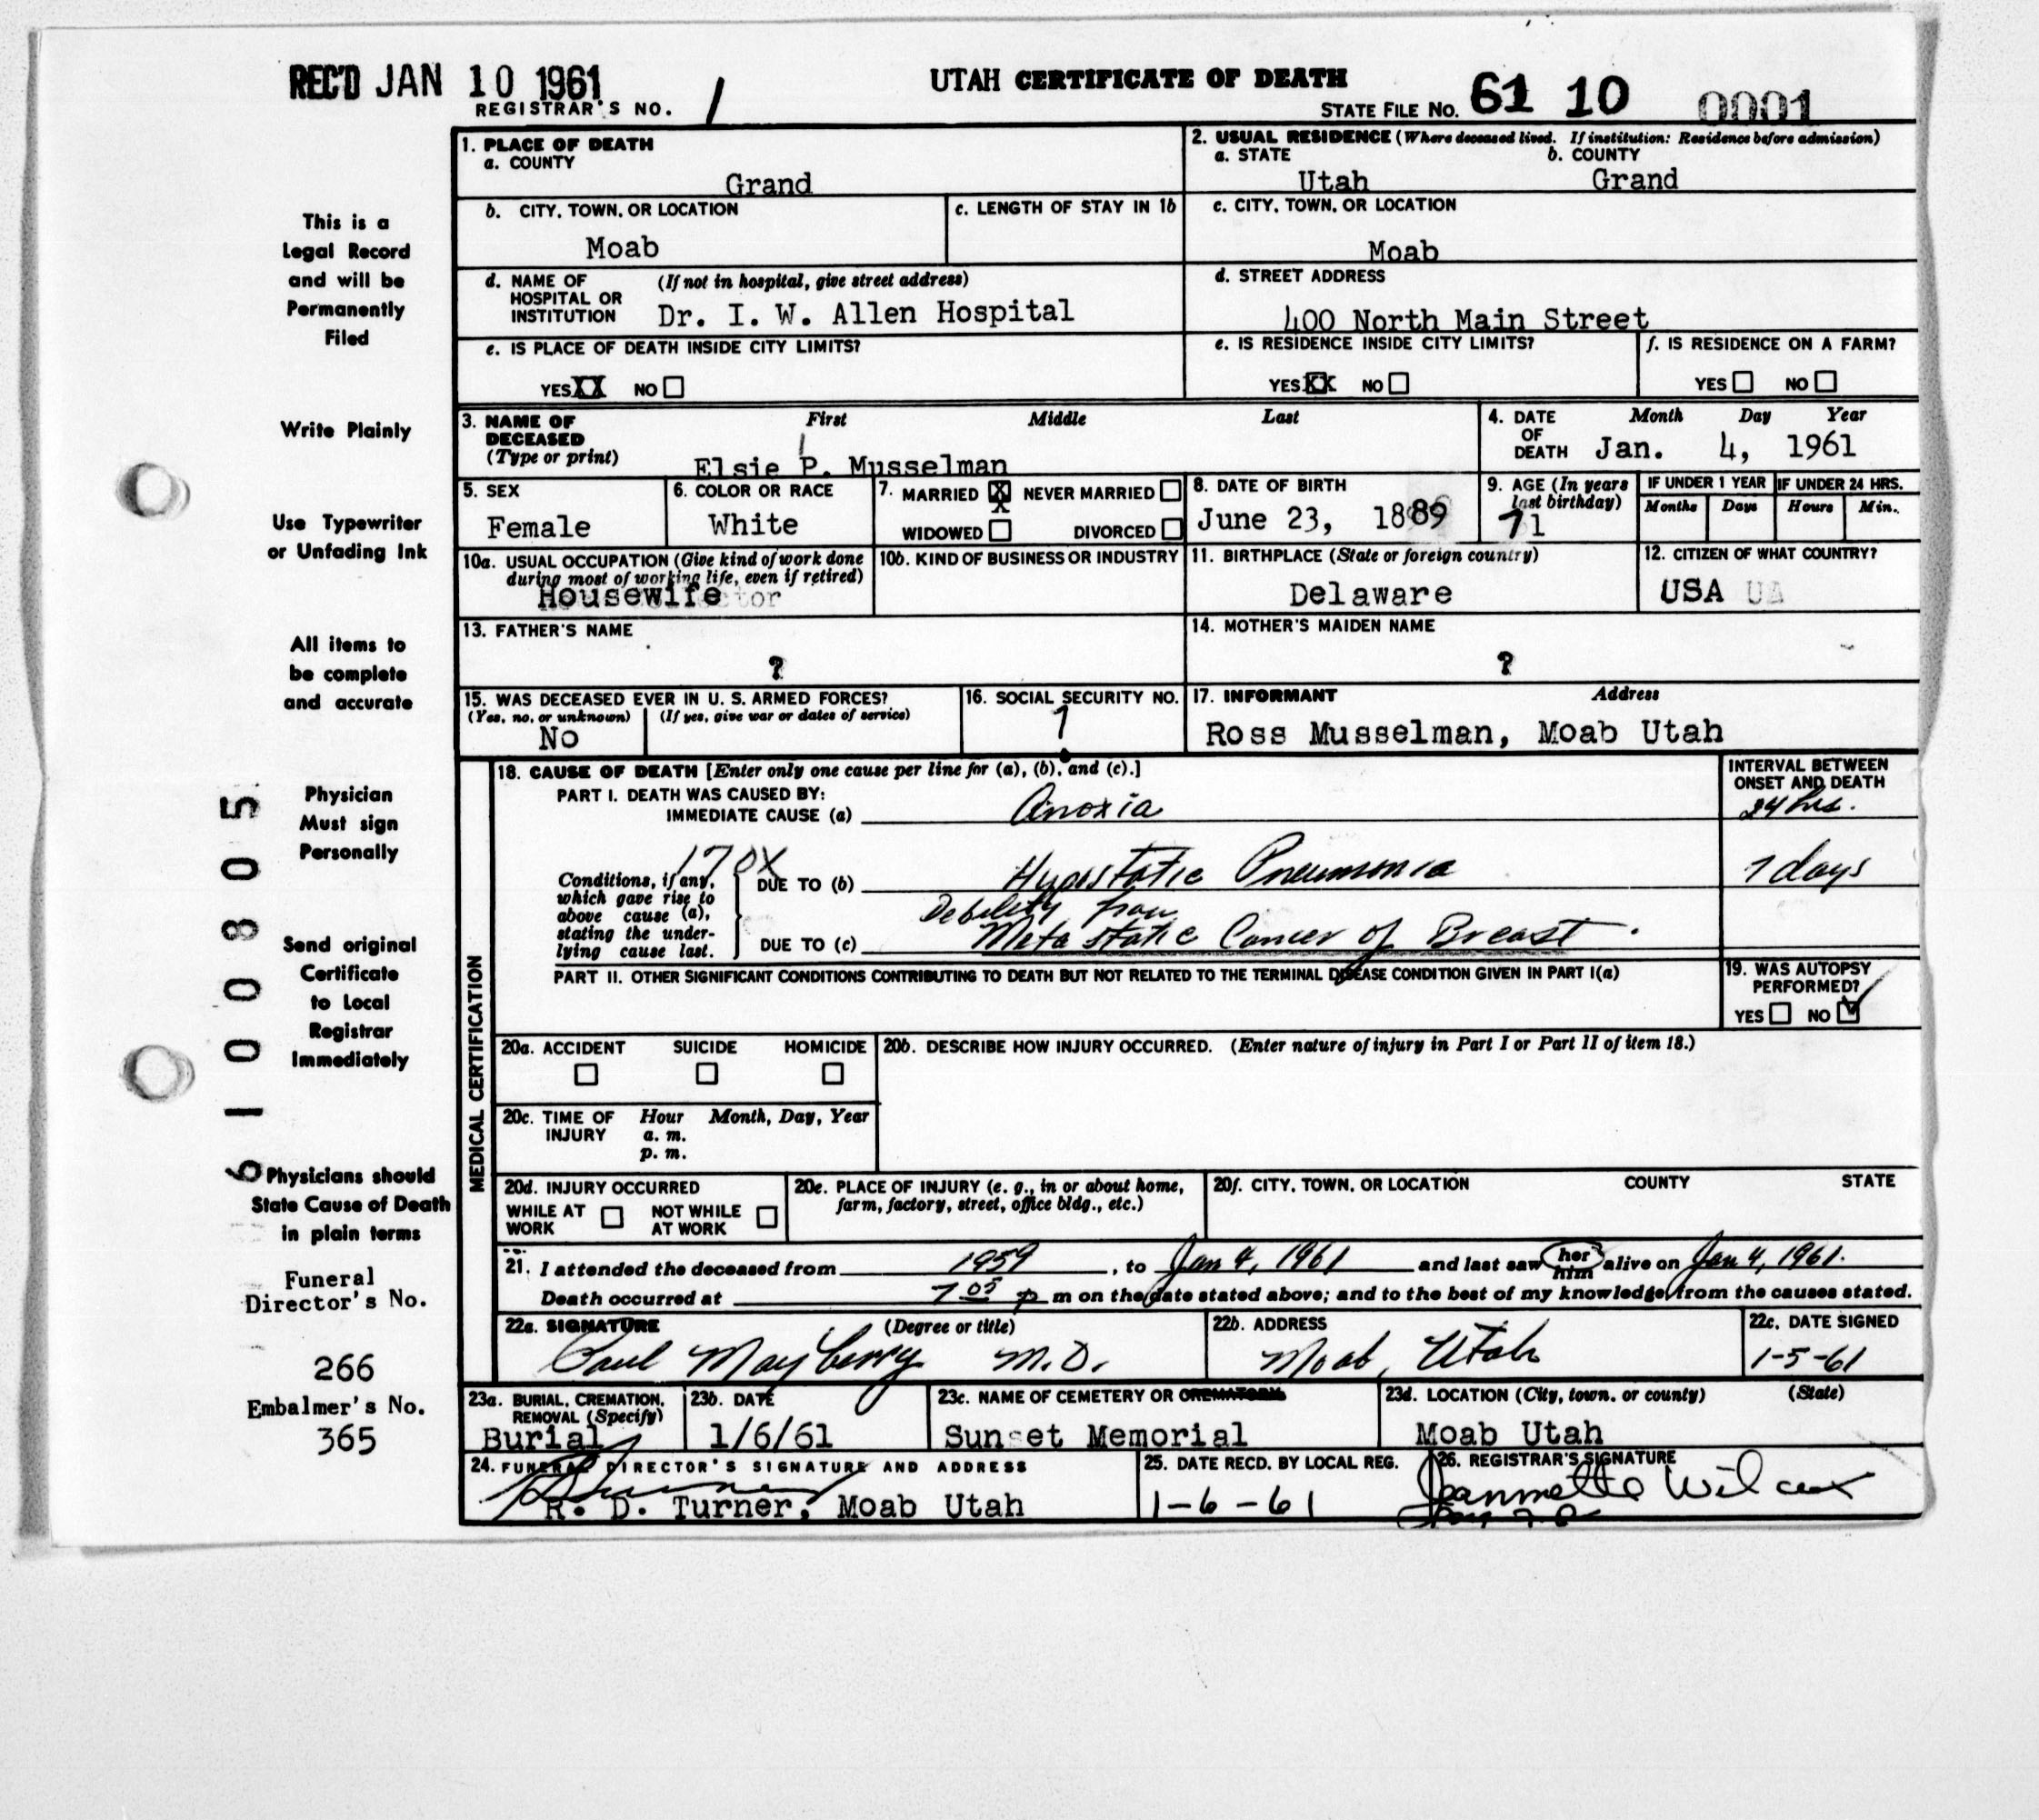 REC'D JAN 10 1961
UTAH CERTIFICATE OF DEATH
REGISTRAR'S NO. 1
STATE FILE No. 61 10 0001
1. PLACE OF DEATH
a. COUNTY
Grand
2. USUAL RESIDENCE (Where deceased lived. If institution: Residence before admission)
a. STATE b. COUNTY
Utah Grand
b. CITY, TOWN, OR LOCATION
Moab
c. LENGTH OF STAY IN 1b
c. CITY, TOWN, OR LOCATION
Moab
d. NAME OF HOSPITAL OR INSTITUTION (If not in hospital, give street address)
Dr. I. W. Allen Hospital
d. STREET ADDRESS
400 North Main Street
e. IS PLACE OF DEATH INSIDE CITY LIMITS?
YES XX NO
e. IS RESIDENCE INSIDE CITY LIMITS?
YES XX NO
f. IS RESIDENCE ON A FARM?
YES NO
3. NAME OF DECEASED (Type or print)
First Middle Last
Elsie P. Musselman
4. DATE OF DEATH
Month Day Year
Jan. 4, 1961
5. SEX
Female
6. COLOR OR RACE
White
7. MARRIED X NEVER MARRIED
WIDOWED DIVORCED
8. DATE OF BIRTH
June 23, 1889
9. AGE (In years last birthday)
71
IF UNDER 1 YEAR
Months Days
IF UNDER 24 HRS.
Hours Min.
10a. USUAL OCCUPATION (Give kind of work done during most of working life, even if retired)
Housewife
10b. KIND OF BUSINESS OR INDUSTRY
11. BIRTHPLACE (State or foreign country)
Delaware
12. CITIZEN OF WHAT COUNTRY?
USA
13. FATHER'S NAME
?
14. MOTHER'S MAIDEN NAME
?
15. WAS DECEASED EVER IN U. S. ARMED FORCES?
(Yes, no, or unknown) (If yes, give war or dates of service)
No
16. SOCIAL SECURITY NO.
?
17. INFORMANT Address
Ross Musselman, Moab Utah
MEDICAL CERTIFICATION
18. CAUSE OF DEATH [Enter only one cause per line for (a), (b), and (c).]
INTERVAL BETWEEN ONSET AND DEATH
PART I. DEATH WAS CAUSED BY:
IMMEDIATE CAUSE (a) Anoxia 24 hrs.
170X
Conditions, if any, which gave rise to above cause (a), stating the underlying cause last.
DUE TO (b) Hypostatic Pneumonia 7 days
Debility from
DUE TO (c) Metastatic Cancer of Breast.
PART II. OTHER SIGNIFICANT CONDITIONS CONTRIBUTING TO DEATH BUT NOT RELATED TO THE TERMINAL DISEASE CONDITION GIVEN IN PART I(a)
19. WAS AUTOPSY PERFORMED?
YES NO
20a. ACCIDENT SUICIDE HOMICIDE
20b. DESCRIBE HOW INJURY OCCURRED. (Enter nature of injury in Part I or Part II of item 18.)
20c. TIME OF INJURY Hour Month, Day, Year
a. m.
p. m.
20d. INJURY OCCURRED
WHILE AT WORK NOT WHILE AT WORK
20e. PLACE OF INJURY (e. g., in or about home, farm, factory, street, office bldg., etc.)
20f. CITY, TOWN, OR LOCATION COUNTY STATE
21. I attended the deceased from 1959, to Jan 4, 1961 and last saw her him alive on Jan 4, 1961.
Death occurred at 7 05 p m on the date stated above; and to the best of my knowledge, from the causes stated.
22a. SIGNATURE (Degree or title)
Paul Mayberry M.D.
22b. ADDRESS
Moab, Utah
22c. DATE SIGNED
1-5-61
23a. BURIAL, CREMATION, REMOVAL (Specify)
Burial
23b. DATE
1/6/61
23c. NAME OF CEMETERY OR CREMATORY
Sunset Memorial
23d. LOCATION (City, town, or county) (State)
Moab Utah
24. FUNERAL DIRECTOR'S SIGNATURE AND ADDRESS
R. D. Turner, Moab Utah
25. DATE RECD. BY LOCAL REG.
1-6-61
26. REGISTRAR'S SIGNATURE
Jeannette Wilcox
This is a
Legal Record
and will be
Permanently
Filed
Write Plainly
Use Typewriter
or Unfading Ink
All items to
be complete
and accurate
Physician
Must sign
Personally
Send original
Certificate
to Local
Registrar
Immediately
Physicians should
State Cause of Death
in plain terms
Funeral
Director's No.
266
Embalmer's No.
365
6100805